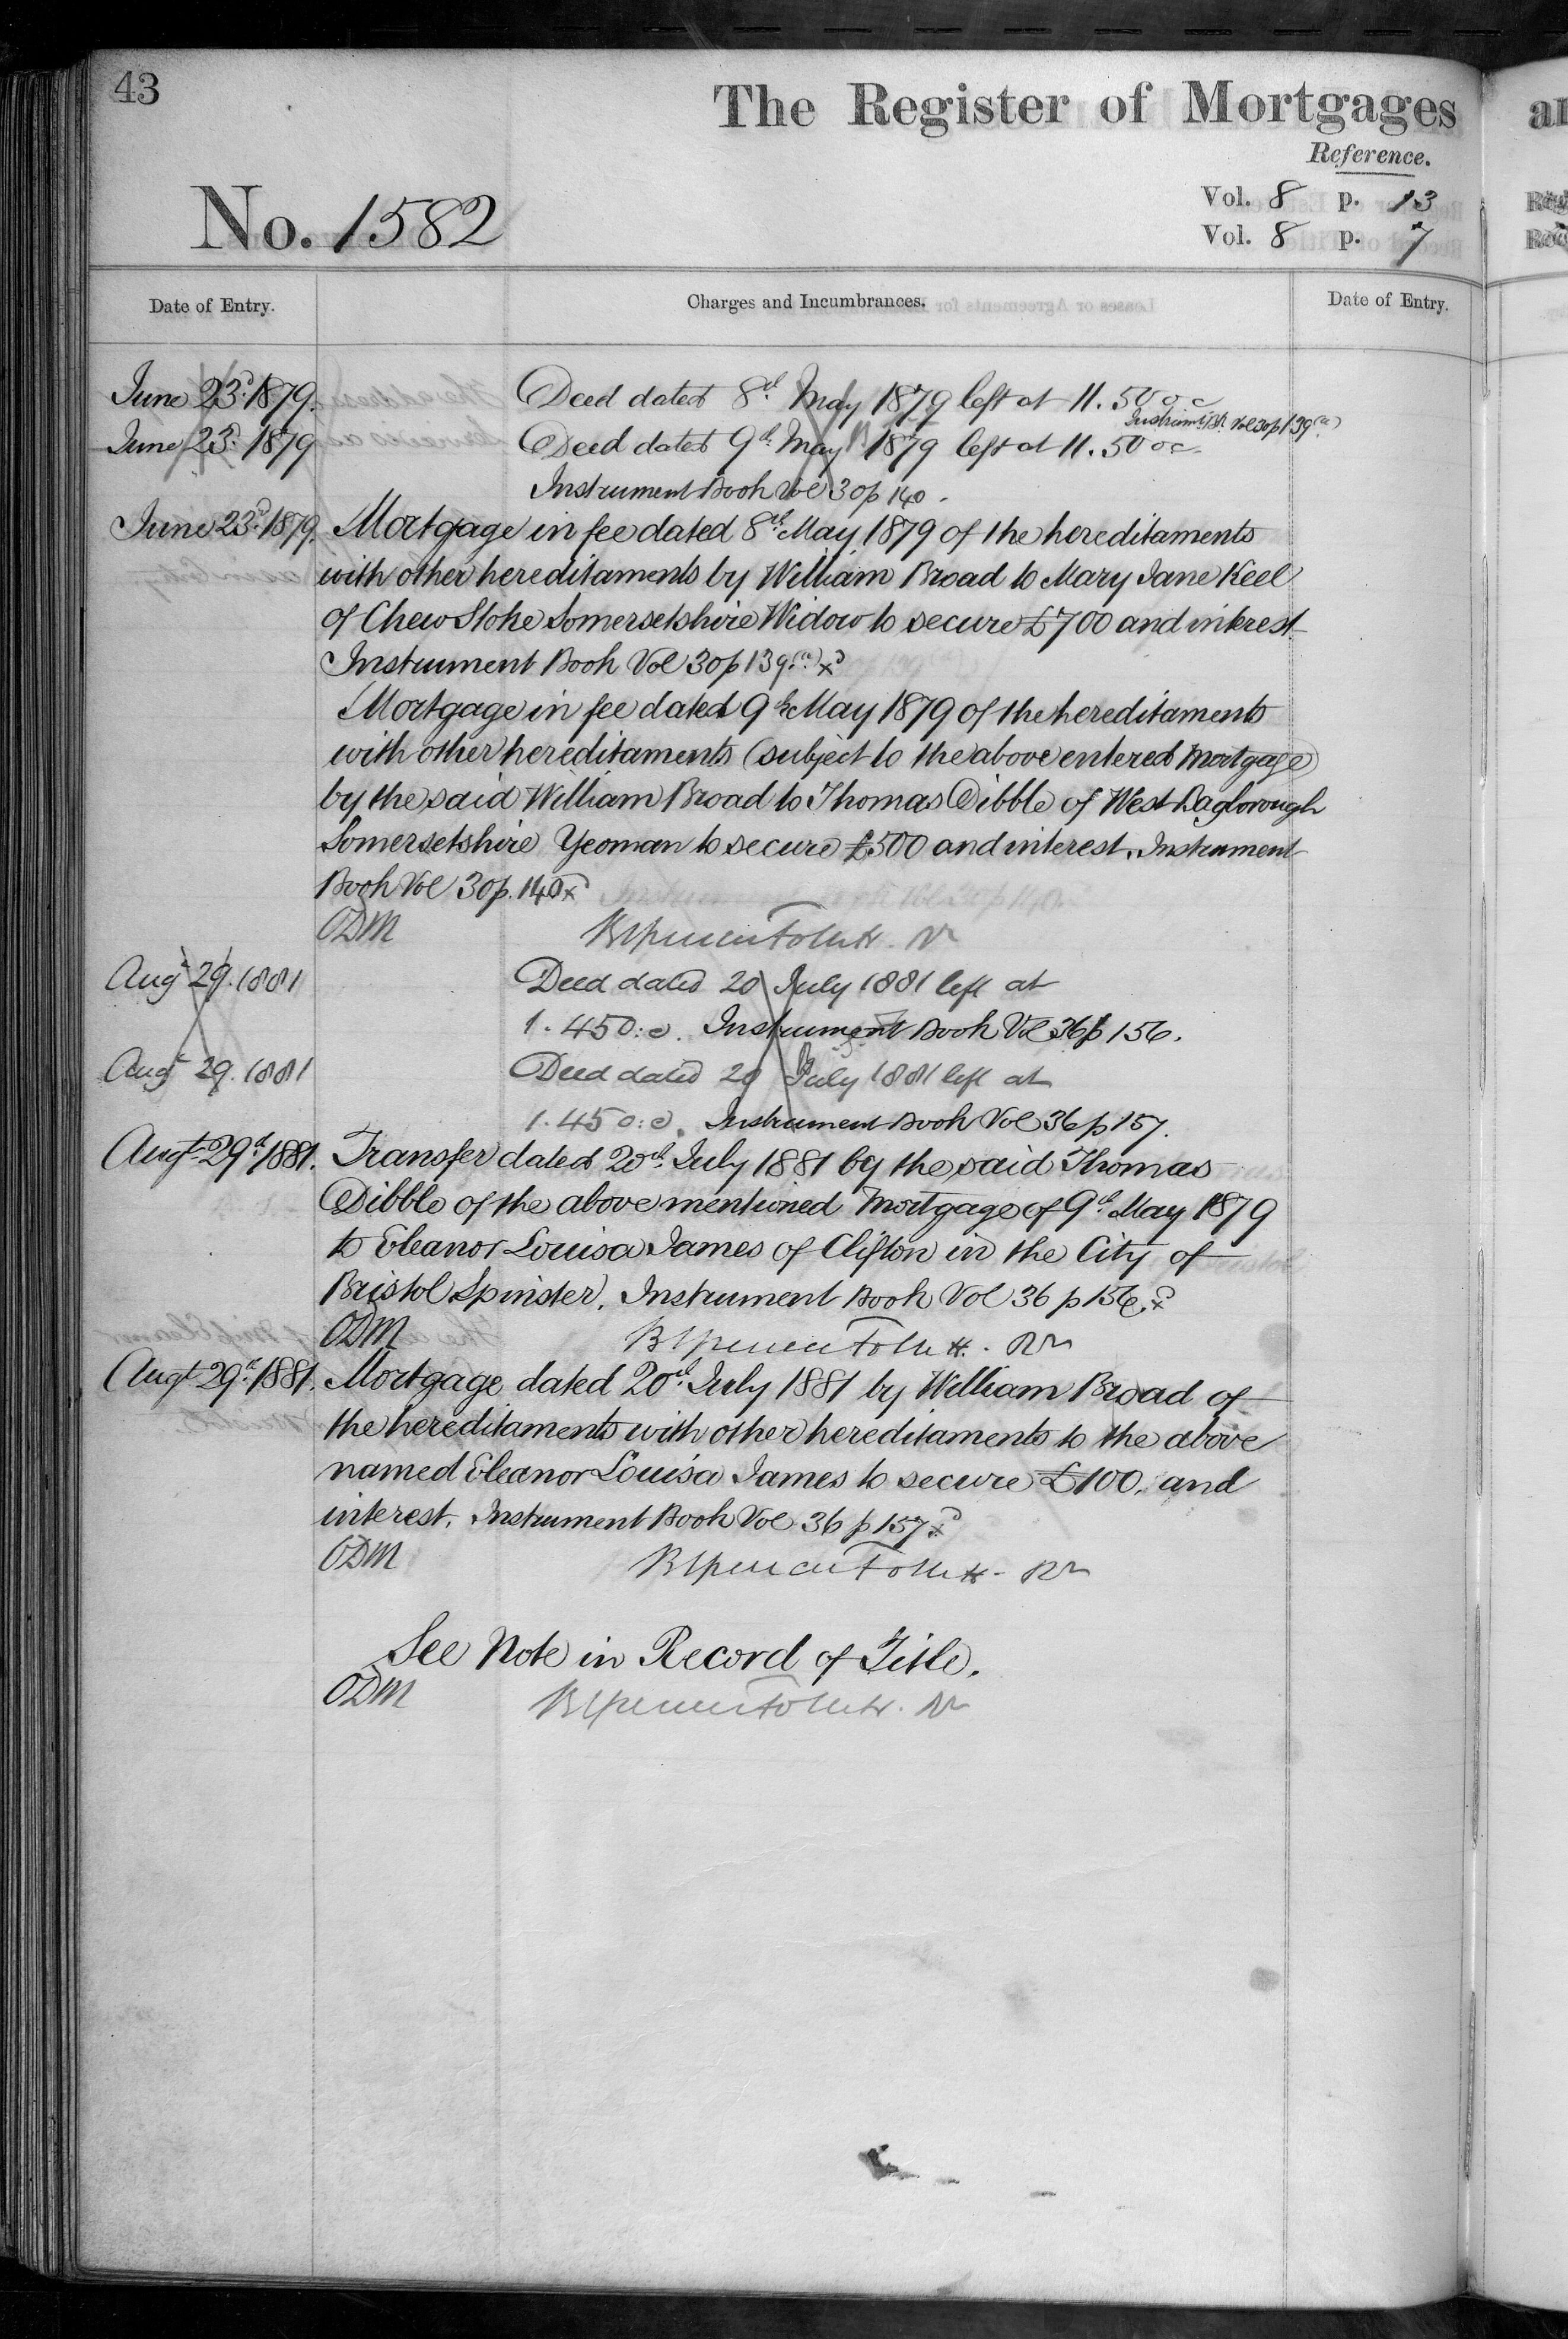 43
The Register of Mortgages
Reference.
No. 1582
Vol. 8 p. 13
Vol. 8 p. 7
Date of Entry.
Charges and Incumbrances.
Date of Entry.
June 23d. 1879. Deed dated 8th May 1879 left at 11.50 oc
Instrumt Bk Vol 30 p 139(a)
June 23d. 1879 Deed dated 9th May 1879 left at 11.50 oc
Instrument Book Vol 30 p 140.
June 23d. 1879. Mortgage in fee dated 8th May 1879 of the hereditaments
with other hereditaments by William Broad to Mary Jane Keel
of Chew Stoke Somersetshire Widow to secure £700 and interest
Instrument Book Vol 30 p 139(a) xd
Mortgage in fee dated 9th May 1879 of the hereditaments
with other hereditaments (subject to the above entered Mortgage)
by the said William Broad to Thomas Dibble of West Bagborough
Somersetshire Yeoman to secure £500 and interest. Instrument
Book Vol 30 p. 140 xd
ODM
Augt 29. 1881 Deed dated 20 July 1881 left at
1.45 o:c. Instrument Book Vol 36 p 156.
Augt 29. 1881 Deed dated 20 July 1881 left at
1.45 o:c. Instrument Book Vol 36 p 157.
Augt 29th 1881. Transfer dated 20th July 1881 by the said Thomas
Dibble of the above mentioned Mortgage of 9th May 1879
to Eleanor Louisa James of Clifton in the City of
Bristol Spinster. Instrument Book Vol 36 p 156. xd
ODM
Augt 29th 1881. Mortgage dated 20th July 1881 by William Broad of
the hereditaments with other hereditaments to the above
named Eleanor Louisa James to secure £100. and
interest. Instrument Book Vol 36 p 157 xd
ODM
See Note in Record of Title.
ODM